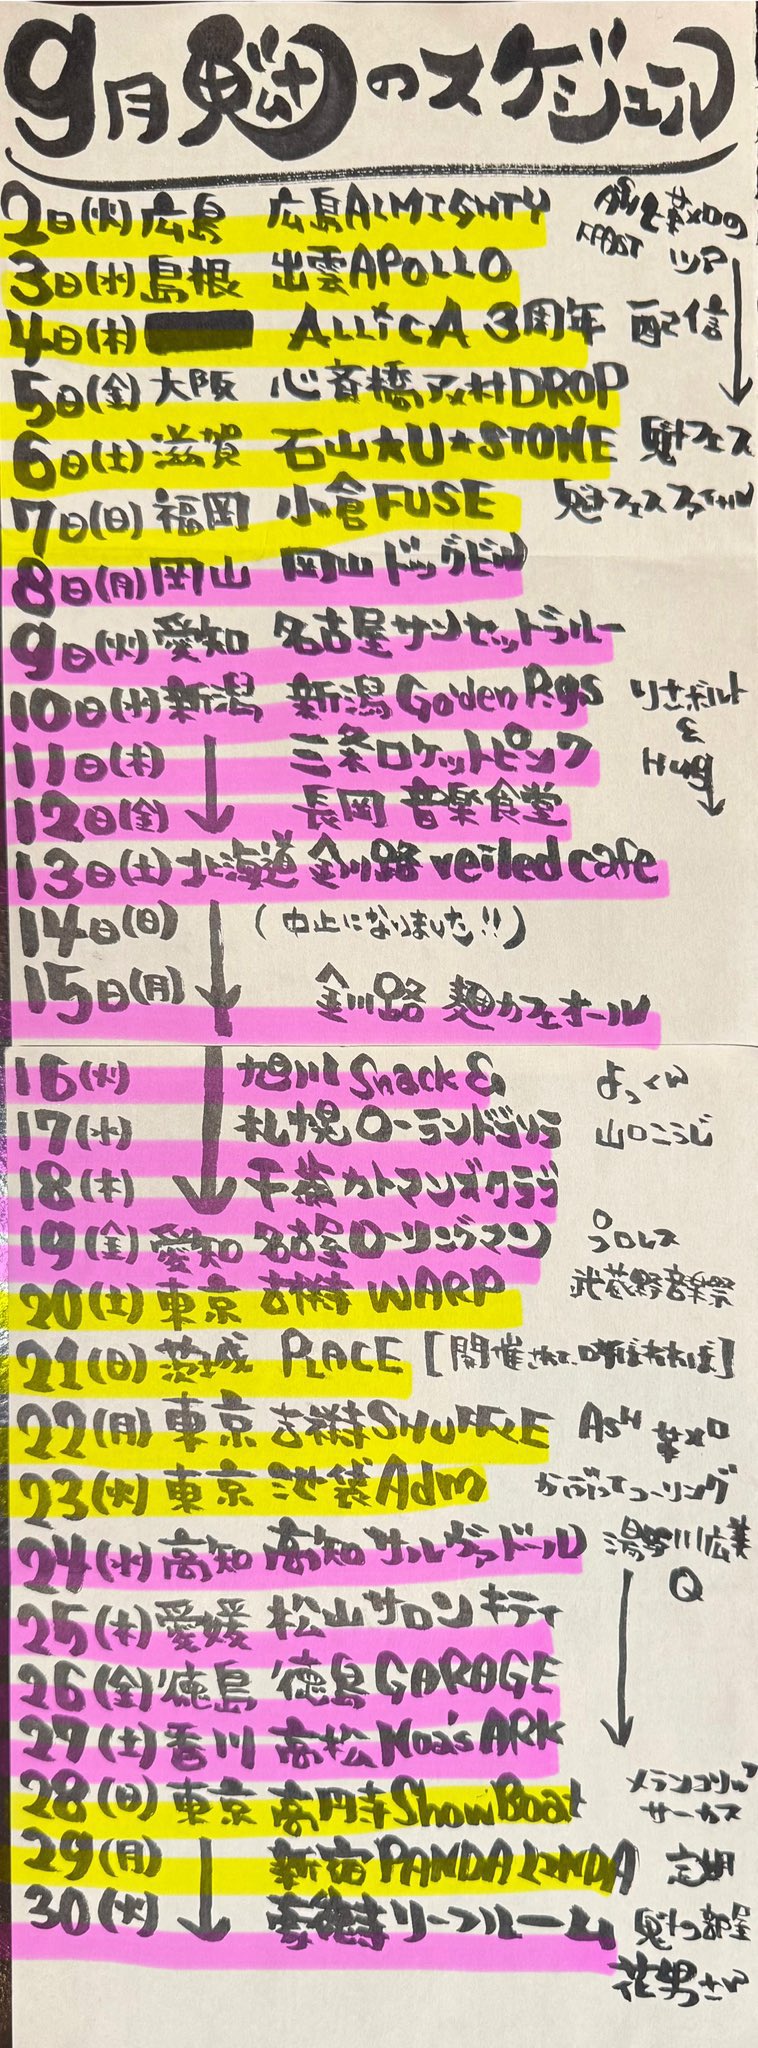 9月 魁のスケジュール
2日(火) 広島 広島ALMIGHTY 菜メロの
ツアー
3日(水) 島根 出雲APOLLO
4日(木) ALLiCA 3周年 配信
5日(金) 大阪 心斎橋アメ村DROP
6日(土) 滋賀 石山★U★STONE 魁フェス
7日(日) 福岡 小倉FUSE 魁フェスファイナル
8日(月) 岡山 岡山ドッグビル
9日(火) 愛知 名古屋サンセットブルー
10日(水) 新潟 新潟Golden Pigs りさボルト
&
Hug
11日(木) 三条ロケットピンク
12日(金) 長岡 音楽食堂
13日(土) 北海道 釧路 veiled cafe
14日(日) (中止になりました!!)
15日(月) 釧路 麺カフェオール
16(火) 旭川 Snack & よっくん
17(水) 札幌 ローランドゴリラ 山口こうじ
18(木) 千歳カトマンズクラブ
19(金) 愛知 名古屋ローリングマン プロレス
20(土) 東京 吉祥寺 WARP 武蔵野音楽祭
21(日) 茨城 PLACE [開催されて、呼ばれれば]
22(月) 東京 吉祥寺SHUFFLE ASH 菜メロ
23(火) 東京 池袋Adm かぶってツーリング
24(水) 高知 高知サルヴァドール 湯野川広美
Q
25(木) 愛媛 松山サロンキティ
26(金) 徳島 徳島GARAGE
27(土) 香川 高松Noa's ARK
28(日) 東京 高円寺ShowBoat メランコリック
サーカス
29(月) 新宿 PANDA LINDA 定期
30(火) 吉祥寺リーフルーム 魁の部屋
花男さん